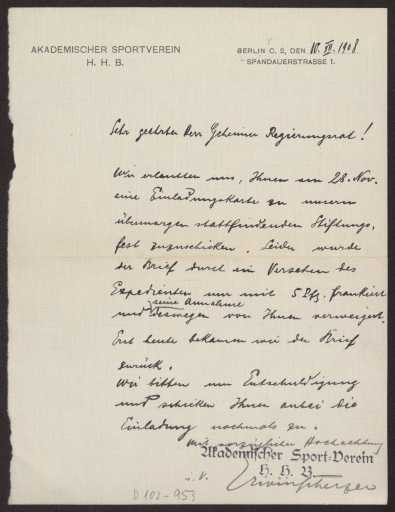 AKADEMISCHER SPORTVEREIN
H. H. B.
BERLIN C. 2, DEN 10. XII. 1908
SPANDAUERSTRASSE 1.
Sehr geehrter Herr Geheimer Regierungsrat!
Wir erlaubten uns, Ihnen am 28. Nov.
eine Einladungskarte zu unserm
übermorgen stattfindenden Stiftungs-
fest zuzuschicken. Leider wurde
der Brief durch ein Versehen des
Expedienten nur mit 5 Pfg. frankiert
seine Annahme
und deswegen von Ihnen verweigert.
Erst heute bekamen wir den Brief
zurück.
Wir bitten um Entschuldigung
und schicken Ihnen anbei die
Einladung nochmals zu.
Mit vorzüglicher Hochachtung
Akademischer Sport-Verein
H. H. B.
i. V.
D 102-953